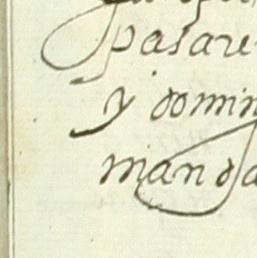 pasare
y domin
manda